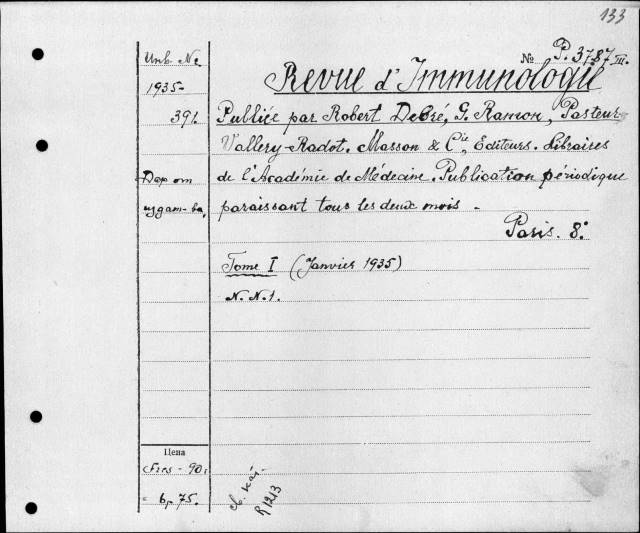 133
Инв. №
№ P. 3787 III.
Revue d'Immunologie
1935-
391. Publiée par Robert Debré, G. Ramon, Pasteur
Vallery-Radot. Masson & Cie, Editeurs. Libraires
Дар от de l'Académie de Médecine. Publication périodique
изда-ва, paraissant tous les deux mois -
Paris. 8.°
Tome I (Janvier 1935)
N. N. 1.
Цена
Frcs - 90.
6 р. 75.
R 1213